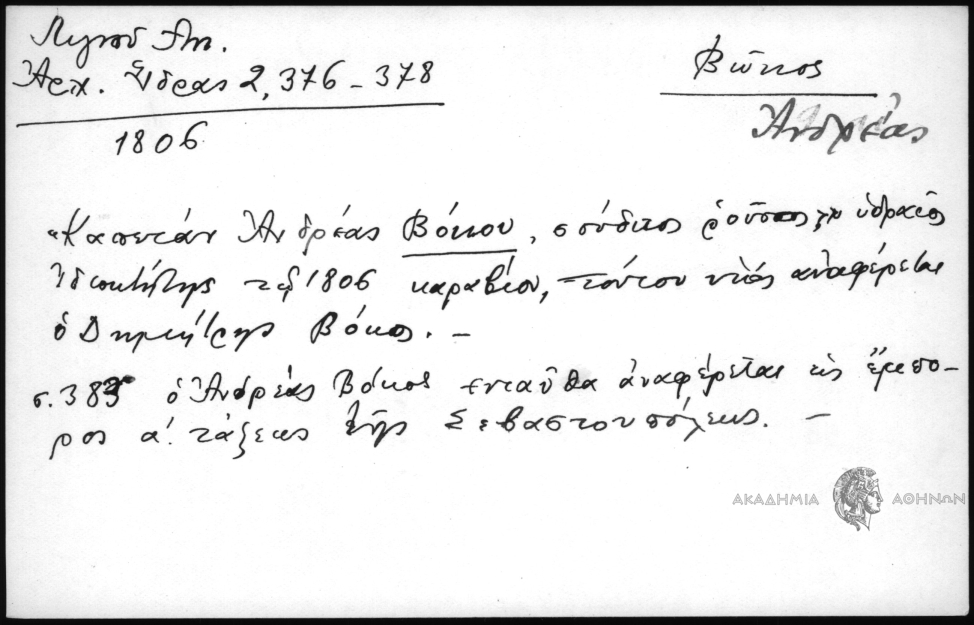 Λιγνοῦ Ἀν.
Ἀρχ. Ὕδρας 2, 376 - 378
1806
Βῶκος
Ἀνδρέας
"Καπετάν Ἀνδρέας Βόκου, ὁ σύνδικος
ἰδιοκτήτης τῷ 1806 καραβίου, τούτου υἱός ἀναφέρεται
ὁ Δημήτρης Βόκος. -
σ. 383 ὁ Ἀνδρέας Βόκος ἐνταῦθα ἀναφέρεται ὡς ἔμπο-
ρος α'. τάξεως τῆς Σεβαστουπόλεως. -
ΑΚΑΔΗΜΙΑ ΑΘΗΝΩΝ